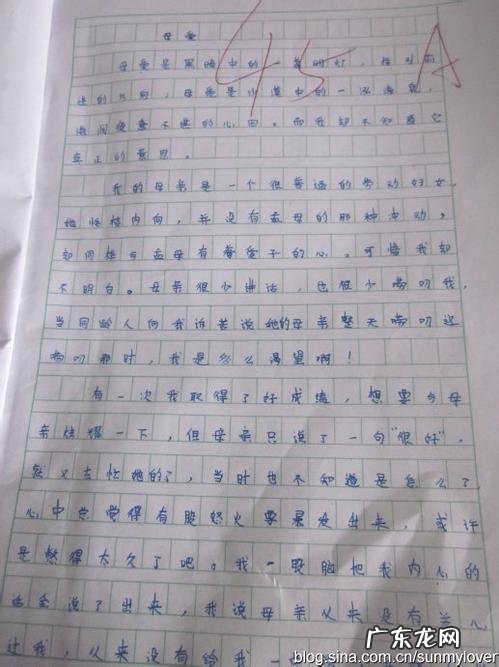 母爱
母爱是黑暗中的一盏明灯，指引前
进的方向，母爱是沙漠中的一泓清泉，
滋润疲惫不堪的心田。而我却不知道它
真正的意思。
我的母亲是一个很普通的劳动妇女，
她性格内向，并没有孟母的那种冲动，
却同样与孟母有着爱子的心。可惜我却
不明白。母亲很少讲话，也很少唠叨我，
当同龄人向我诉苦说她的母亲整天唠叨这
唠叨那时，我是多么渴望啊！
有一次我取得了好成绩，想要与母
亲炫耀一下，但母亲只说了一句“很好”，
就又去忙她的了，当时也不知道是怎么了
心中总觉得有股怒火要暴发出来，或许
是憋得太久了吧。我一股脑把我内心的
话全说了出来，我说母亲从来没有关心
过我，从来没有给我一
45 A
广东龙网
blog.sina.com.cn/sunnylover